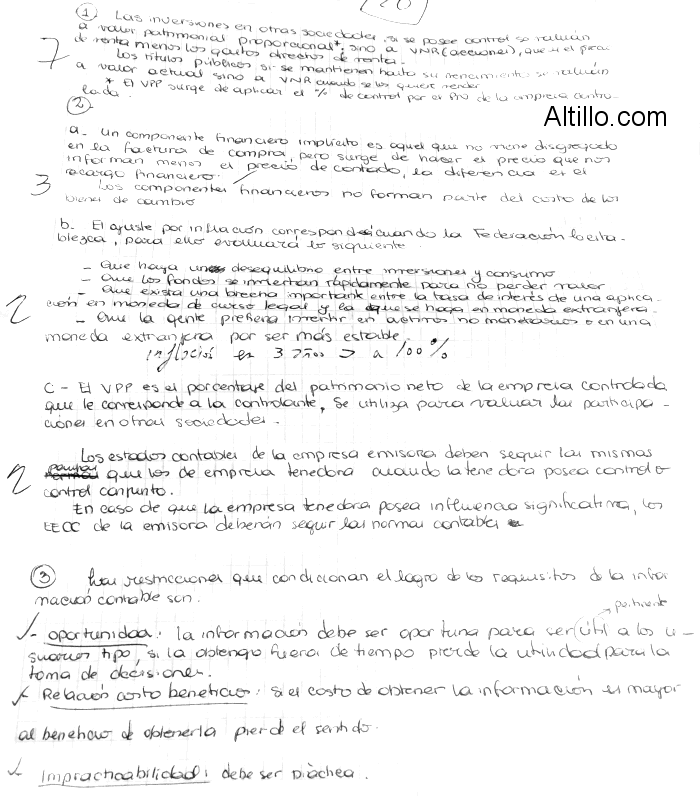 ①
Las inversiones en otras sociedades, si se posee control se valúan
a valor patrimonial proporcional*, sino a VNR (acciones), que es el precio
de venta menos los gastos directos de venta.
7
Los títulos públicos si se mantienen hasta su vencimiento se valúan
a valor actual sino a VNR cuando se los quiere vender
* El VPP surge de aplicar el % de control por el PN de la empresa contro-
lada.
Altillo.com
②
a- Un componente financiero implícito es aquel que no viene disgregado
en la factura de compra, pero surge de hacer el precio que nos
informan menos el precio de contado, la diferencia es el
recargo financiero.
3
Los componentes financieros no forman parte del costo de los
bienes de cambio
b. El ajuste por inflación corresponde cuando la Federación lo esta-
blezca, para ello evaluará lo siguiente
- Que haya un desequilibrio entre inversiones y consumo
- Que los fondos se inviertan rápidamente para no perder valor
- Que exista una brecha importante entre la tasa de interés de una aplica-
2
ción en moneda de curso legal y la que se haga en moneda extranjera.
- Que la gente prefiera invertir en activos no monetarios o en una
moneda extranjera por ser más estable.
inflación en 3 años > a 100%
C- El VPP es el porcentaje del patrimonio neto de la empresa controlada
que le corresponde a la controlante, se utiliza para valuar las participa-
ciones en otras sociedades.
Los estados contables de la empresa emisora deben seguir las mismas
pautas que los de empresa tenedora cuando la tenedora posea control o
2
control conjunto.
En caso de que la empresa tenedora posea influencia significativa, los
EECC de la emisora deberán seguir las normas contables
③
Las restricciones que condicionan el logro de los requisitos de la infor
mación contable son.
pertinente
- oportunidad: la información debe ser oportuna para ser útil a los u-
suarios tipo, si la obtengo fuera de tiempo pierde la utilidad para la
toma de decisiones.
- Relación costo beneficio: si el costo de obtener la información es mayor
al beneficio de obtenerla pierde el sentido.
- Impracticabilidad: debe ser